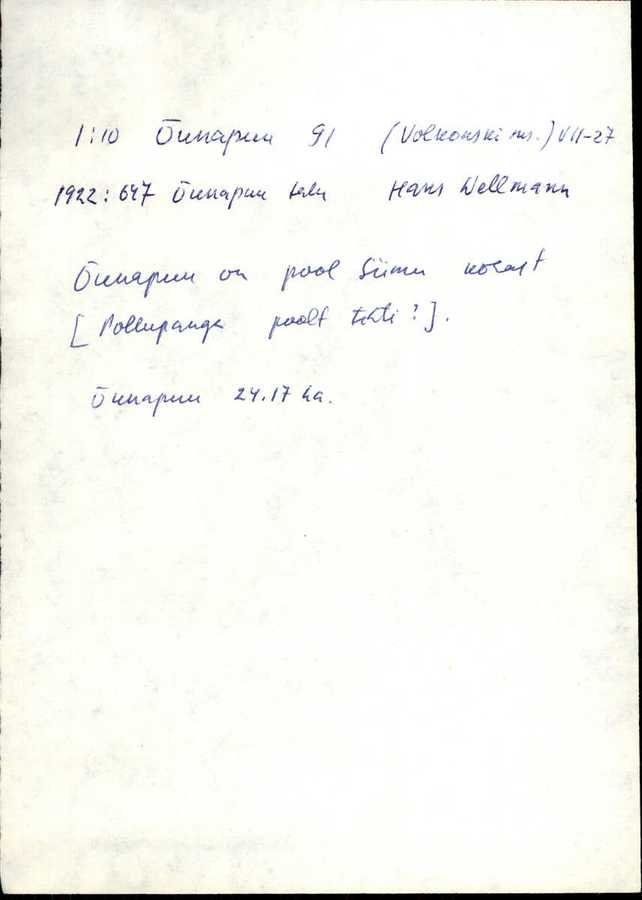 1:10 Õunapuu 91 (Volkonski ms.) VII-27
1922: 647 Õunapuu talu Hans Wellmann
Õunapuu on pool Siimu kohast
[Põllupanga poolt tehti?].
Õunapuu 24.17 ha.